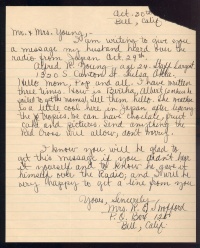 Oct. 30th
Bell, Calif.
Mr. & Mrs. Young,-
I am writing to give you
a message my husband heard over the
radio from Japan Oct. 29th.
Alfred R. Young, age 24, Staff Sargt
1320 S. Canton St. Tulsa, Okla.
Hello Mom, Pop and all, I have written
three times. How is Bertha,
to get the named. Tell them hello. She
to a little cook here in Japan, after leaving
the tropics. We can have choclate, fruit
cake and pictures. Send anything the
Red Cross will allow, don't worry.
I know you will be glad to
get this message if you didn't hear
it yourself and to know he gave it
himself over the Radio, and I will be
very happy to get a line from you
Yours, Sincerely
Mrs. K. G.
P.O. Box
Bell, Calif.